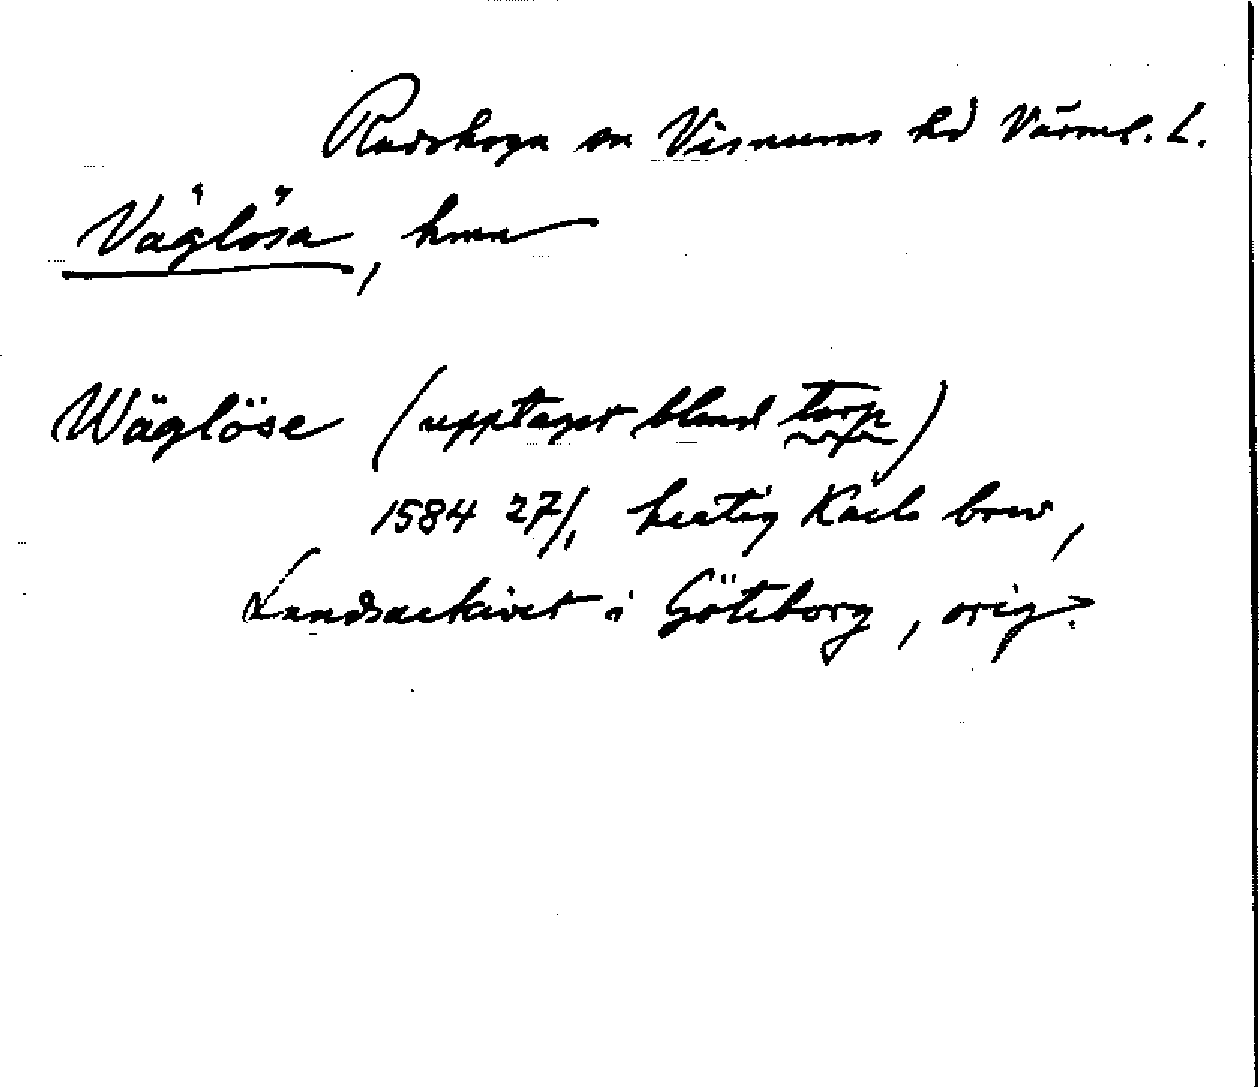 Rudskoga sn Visnums hd Värml. L.
Väglösa, hmn
Wäglöse (upptaget bland torp)
1584 27/1 hertig Karls brev,
Landsarkivet i Göteborg, orig.